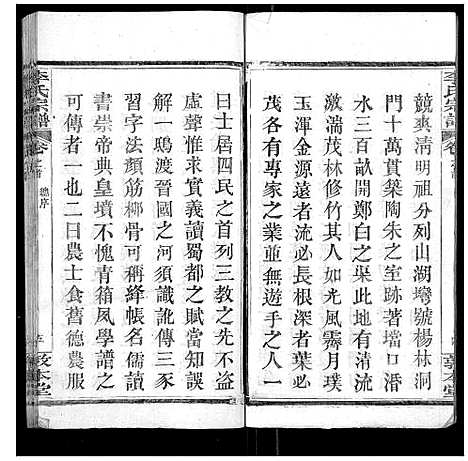 競爽清明祖分列山湖灣號楊林洞
門十萬貫築陶朱之室跡著壋口湝
水三百畝開鄭白之渠此地有清流
激湍茂林修竹其人如光風霽月璞
玉渾金源遠者流必長根深者葉必
茂各有專家之業並無遊手之人一
曰士居四民之首列三教之先不盜
虛聲惟求實義讀蜀都之賦當知誤
解一鴟渡晉國之河須識訛傳三豕
習字法顏筋柳骨可稱絳帳名儒讀
書崇帝典皇墳不愧青箱夙學譜之
可傳者一也二曰農士食舊德農服
李氏宗譜
卷之首
總序
敦本堂